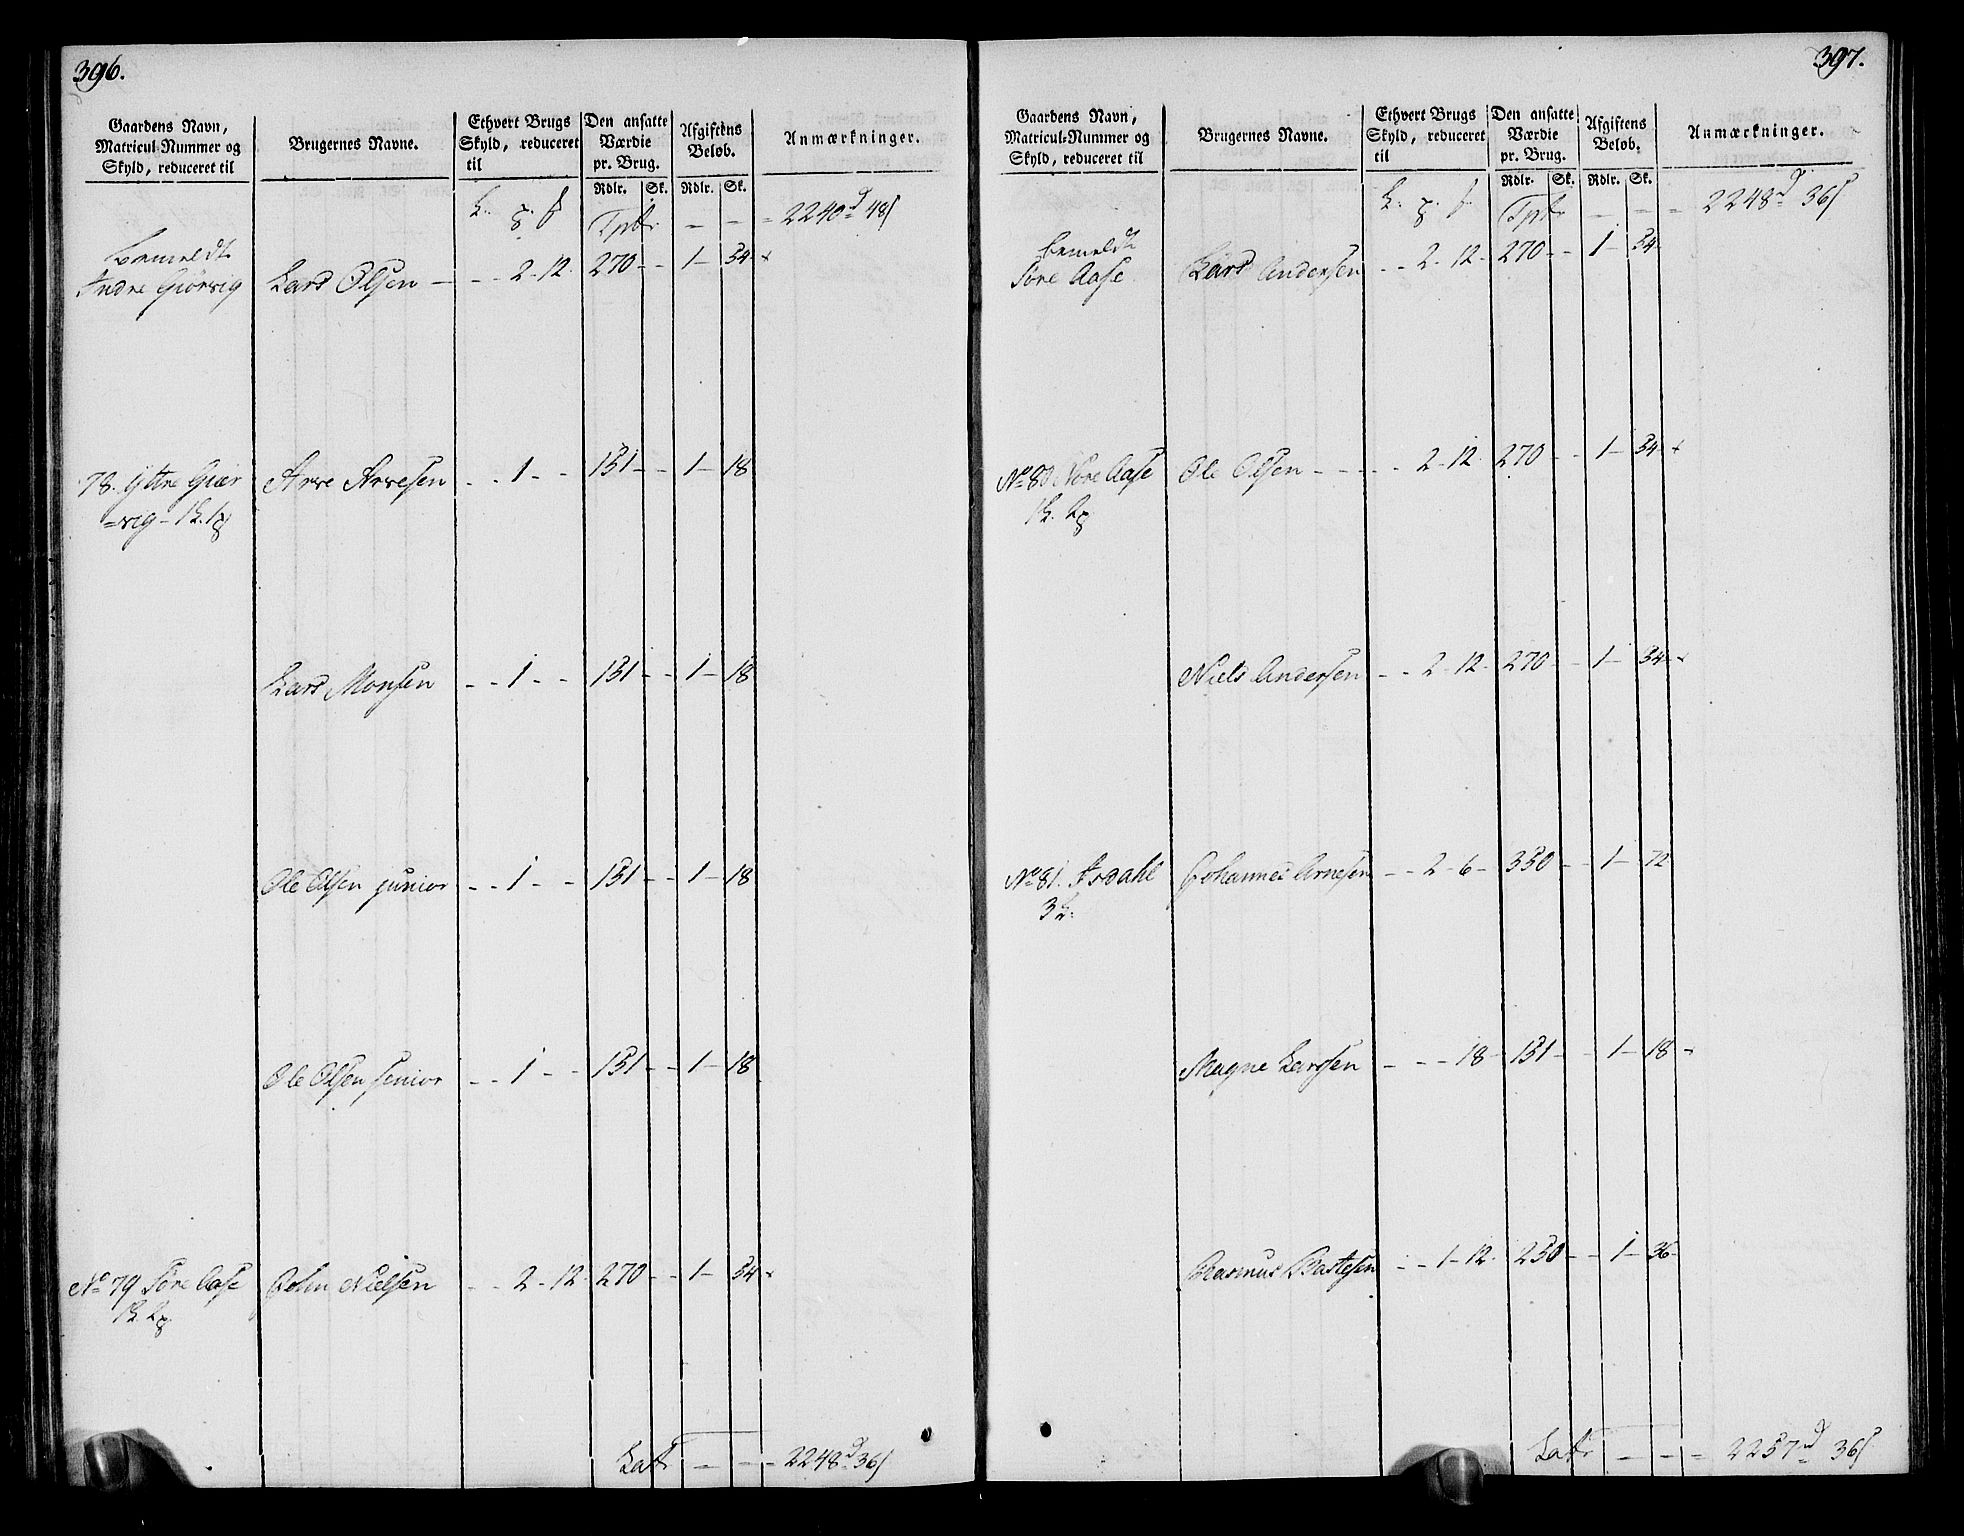 396.
Gaardens Navn, Matricul-Nummer og Skyld, reduceret til
Brugernes Navne.
Ethvert Brugs Skyld, reduceret til
Den ansatte Værdie pr. Brug.
Afgiftens Beløb.
Anmærkninger.
Rdlr. Sk. Rdlr. Sk.
Tpt. - - = 2240 d 48 s
bemeldt
Indre Giörvig Lars Olsen - - - 2 - 12 270 - - 1 - 54
78. Yttre Giær Arve Arvesen - - 1 - - 151 - - 1 - 18
=vig - 1
Lars Monsen - - 1 - - 151 - - 1 - 18
Ole Olsen junior - - 1 - - 151 - - 1 - 18
Ole Olsen senior - - 1 - - 151 - - 1 - 18
No 79 Söre Aase John Nielsen - - 2 - 12 270 - - 1 - 54
Lat - - = 2248 d 36 s
397.
Gaardens Navn, Matricul-Nummer og Skyld, reduceret til
Brugernes Navne.
Ethvert Brugs Skyld, reduceret til
Den ansatte Værdie pr. Brug.
Afgiftens Beløb.
Anmærkninger.
Rdlr. Sk. Rdlr. Sk.
Tpt. - - = 2248 d 36 s
bemeldt
Söre Aase Lars Andersen - - 2 - 12 270 - - 1 - 54
No 80 Nore Aase Ole Olsen - - - - 2 - 12 270 - - 1 - 54
Niels Andersen - - 2 - 12 - 270 - - 1 - 54
No 81. Isdahl Johannes Arnesen - - 2 - 6 - 350 - - 1 - 72
3
Magne Larssen - - - 18 - 151 - - 1 - 18
Rasmus Bastesen - - 1 - 12 - 250 - - 1 - 36
Lat - - = 2257 d 36 s